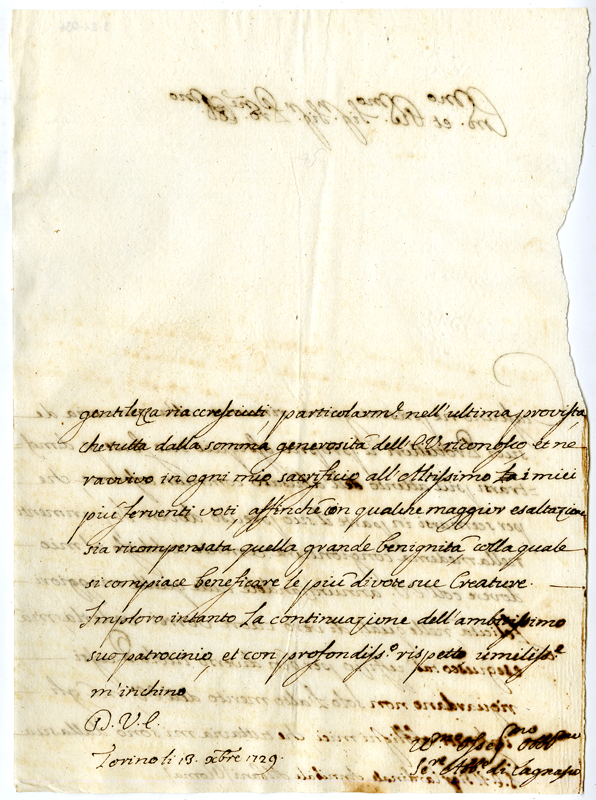 gentilezza riaccresciuti, particolarm.e nell'ultima provista,
che tutta dalla somma generosità dell'E.V. riconosco et né
ravvivo in ogni mio sacrificio all'Altissimo i miei
più ferventi voti, affinché con qualche maggior esaltazione
sia ricompensata quella grande benignità colla quale
si compiace beneficare le più divote sue Creature.
Imploro intanto la continuazione dell'ambitissimo
suo patrocinio, et con profondiss.o rispetto umiliss.e
m'inchino
D. V. E.
Torino li 13. xbre 1729.
di Lagnasco